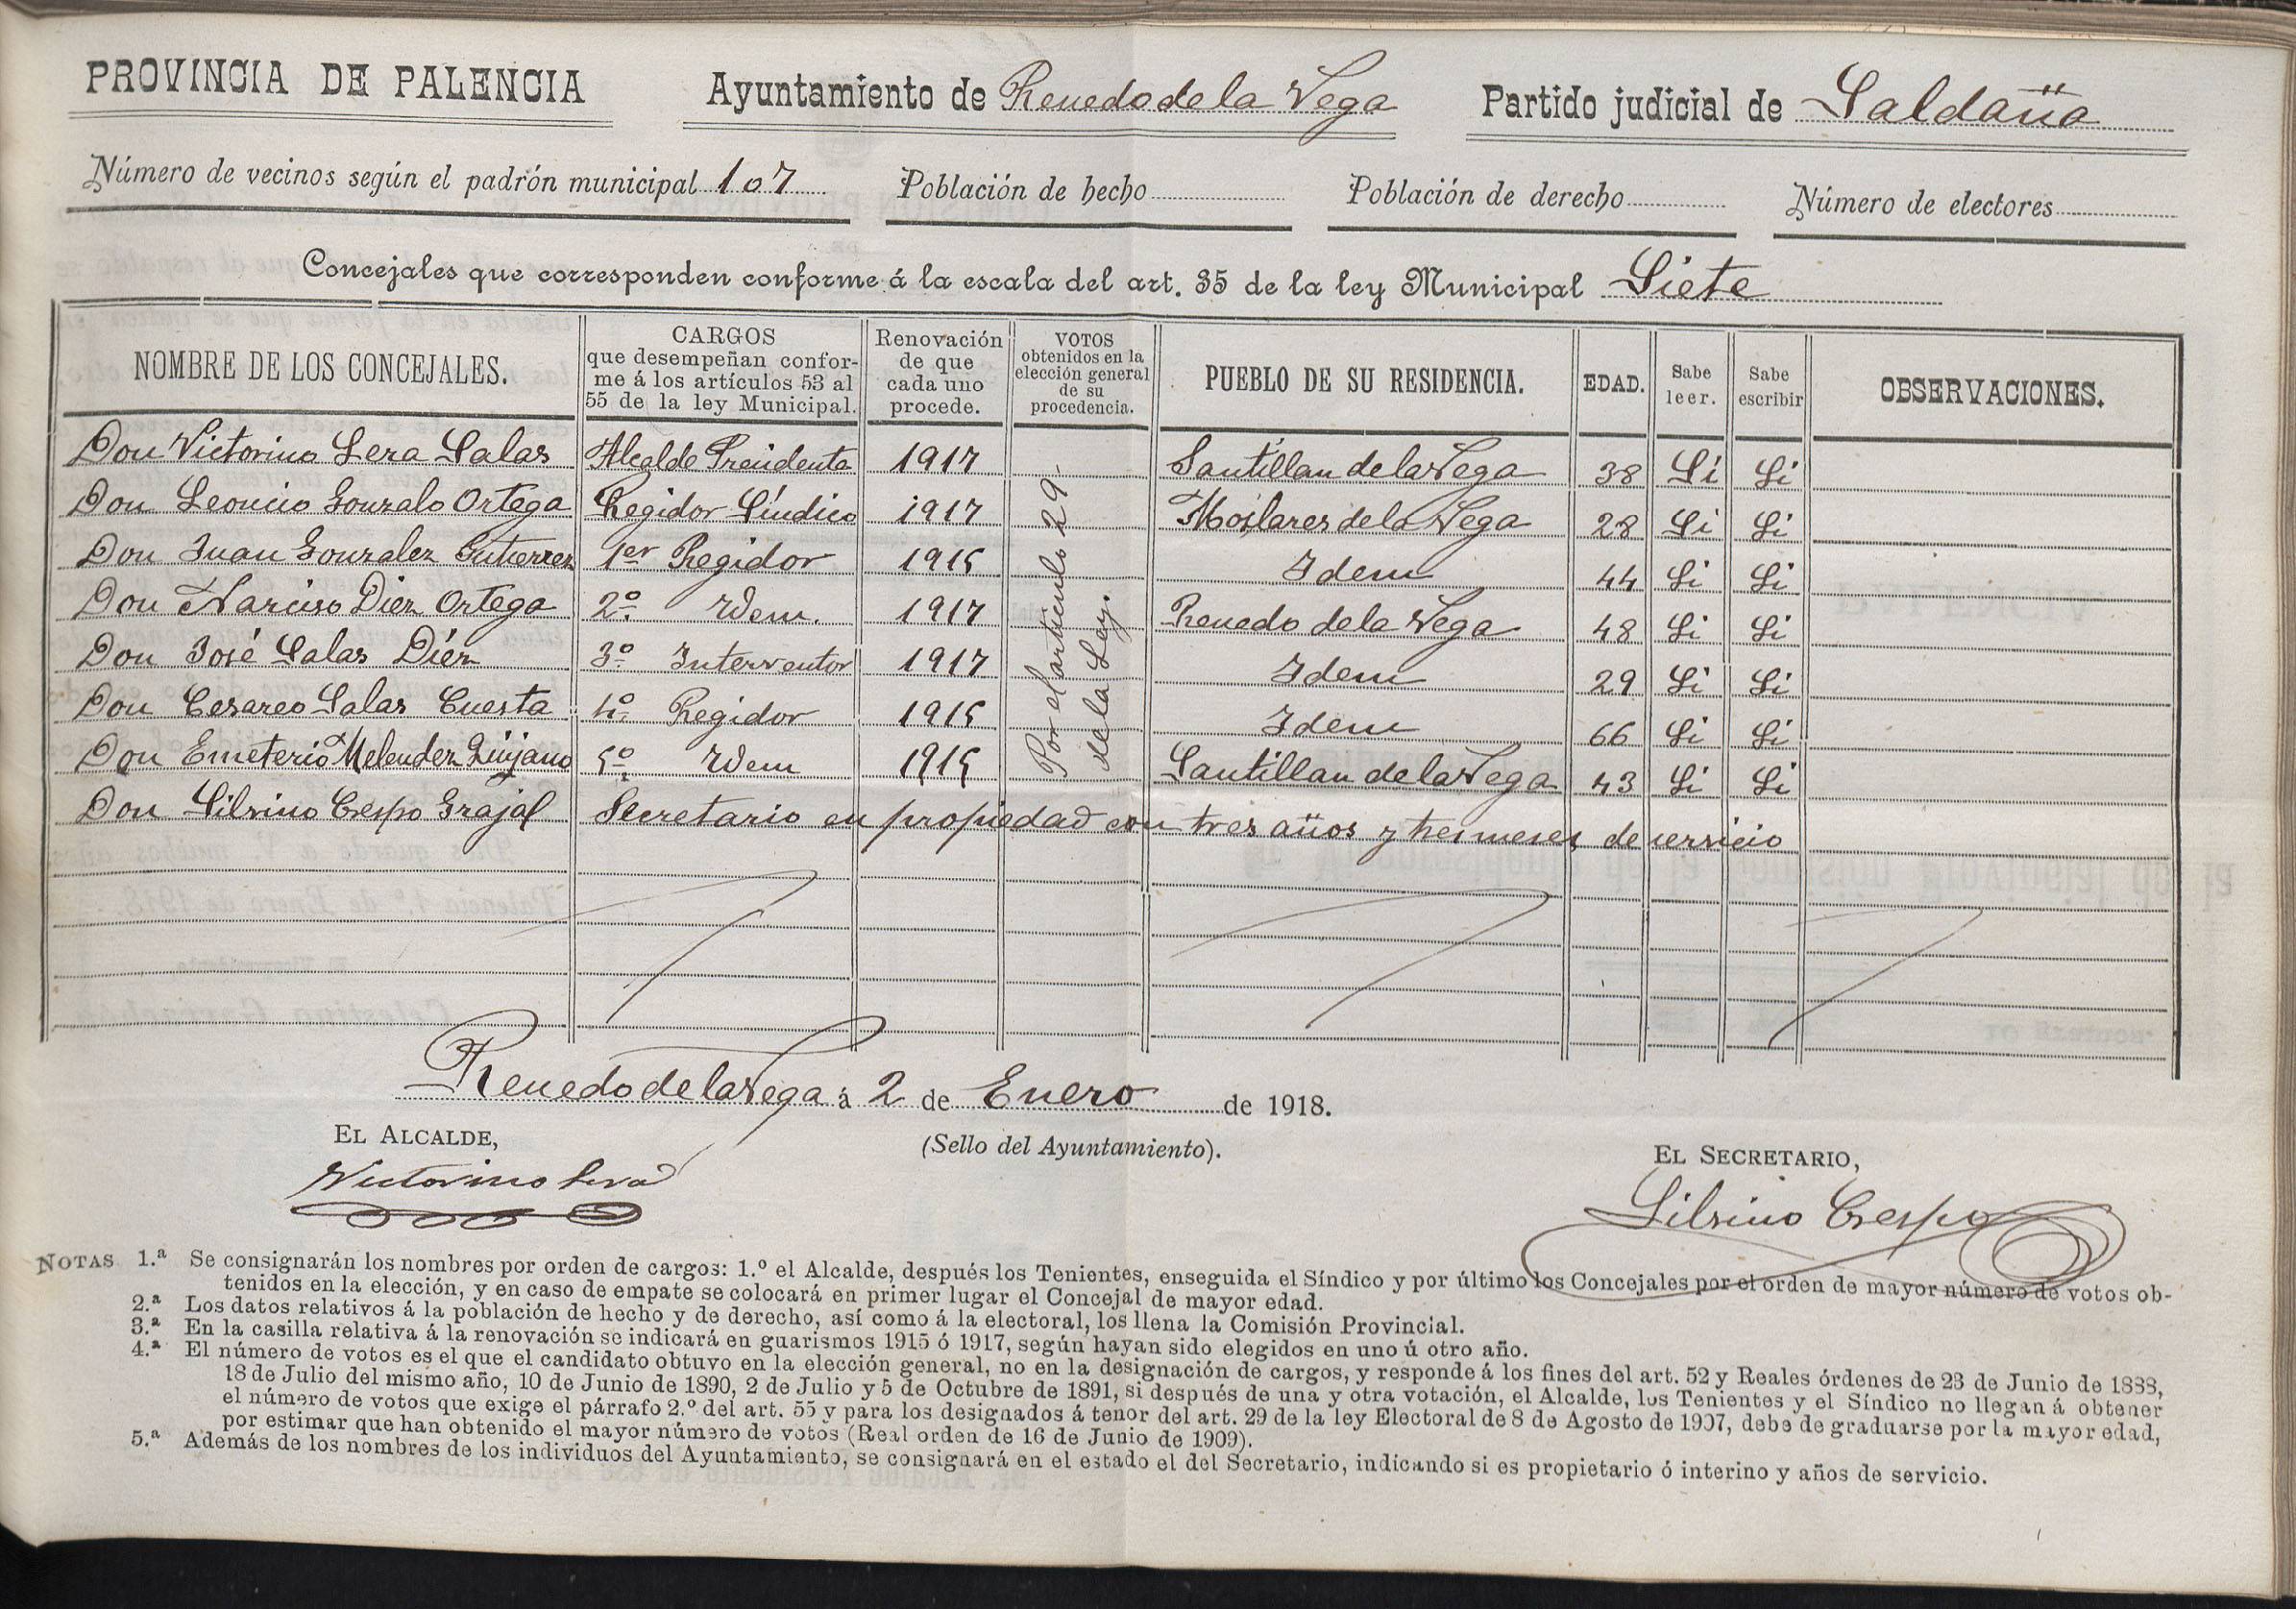 PROVINCIA DE PALENCIA Ayuntamiento de Renedo de la Vega Partido judicial de Saldaña
Número de vecinos según el padrón municipal 107 Población de hecho Población de derecho Número de electores
Concejales que corresponden conforme á la escala del art. 35 de la ley Municipal Siete
NOMBRE DE LOS CONCEJALES.
CARGOS
que desempeñan confor-
me á los artículos 53 al
55 de la ley Municipal.
Renovación
de que
cada uno
procede.
VOTOS
obtenidos en la
elección general
de su
procedencia.
PUEBLO DE SU RESIDENCIA.
EDAD.
Sabe
leer.
Sabe
escribir
OBSERVACIONES.
Don Victorino Lera Salas Alcalde Presidente 1917 Santillan de la Vega 38 Si Si
Don Leoncio Gonzalo Ortega Regidor Síndico 1917 Moslares de la Vega 28 Si Si
Don Juan Gonzalez Gutierrez 1er Regidor 1915 Idem 44 Si Si
Don Narciso Diez Ortega 2º Idem. 1917 Renedo de la Vega 48 Si Si
Don José Salas Diez 3º Interventor 1917 Idem 29 Si Si
Don Cesareo Salas Cuesta 4º Regidor 1915 Idem 66 Si Si
Don Emeterio Melendez Quijano 5º Idem 1915 Santillan de la Vega 43 Si Si
Por el artículo 29
de la Ley.
Don Silvino Crespo Grajal Secretario en propiedad con tres años y tres meses de servicio
Renedo de la Vega á 2 de Enero de 1918.
EL ALCALDE,
(Sello del Ayuntamiento).
EL SECRETARIO,
Victorino Lera
Silvino Crespo
NOTAS 1.ª Se consignarán los nombres por orden de cargos: 1.º el Alcalde, después los Tenientes, enseguida el Síndico y por último los Concejales por el orden de mayor número de votos ob-
tenidos en la elección, y en caso de empate se colocará en primer lugar el Concejal de mayor edad.
2.ª Los datos relativos á la población de hecho y de derecho, así como á la electoral, los llena la Comisión Provincial.
3.ª En la casilla relativa á la renovación se indicará en guarismos 1915 ó 1917, según hayan sido elegidos en uno ú otro año.
4.ª El número de votos es el que el candidato obtuvo en la elección general, no en la designación de cargos, y responde á los fines del art. 52 y Reales órdenes de 23 de Junio de 1888,
18 de Julio del mismo año, 10 de Junio de 1890, 2 de Julio y 5 de Octubre de 1891, si después de una y otra votación, el Alcalde, los Tenientes y el Síndico no llegan á obtener
el número de votos que exige el párrafo 2.º del art. 55 y para los designados á tenor del art. 29 de la ley Electoral de 8 de Agosto de 1907, debe de graduarse por la mayor edad,
por estimar que han obtenido el mayor número de votos (Real orden de 16 de Junio de 1909).
5.ª Además de los nombres de los individuos del Ayuntamiento, se consignará en el estado el del Secretario, indicando si es propietario ó interino y años de servicio.